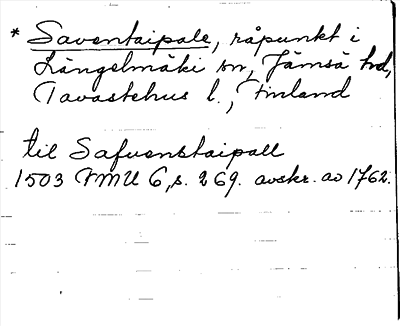 * Saventaipale, råpunkt i
Längelmäki sn, Jämsä hd,
Tavastehus l., Finland
til Safuenstaipall
1503 FMU 6, s. 269. avskr. av 1762.